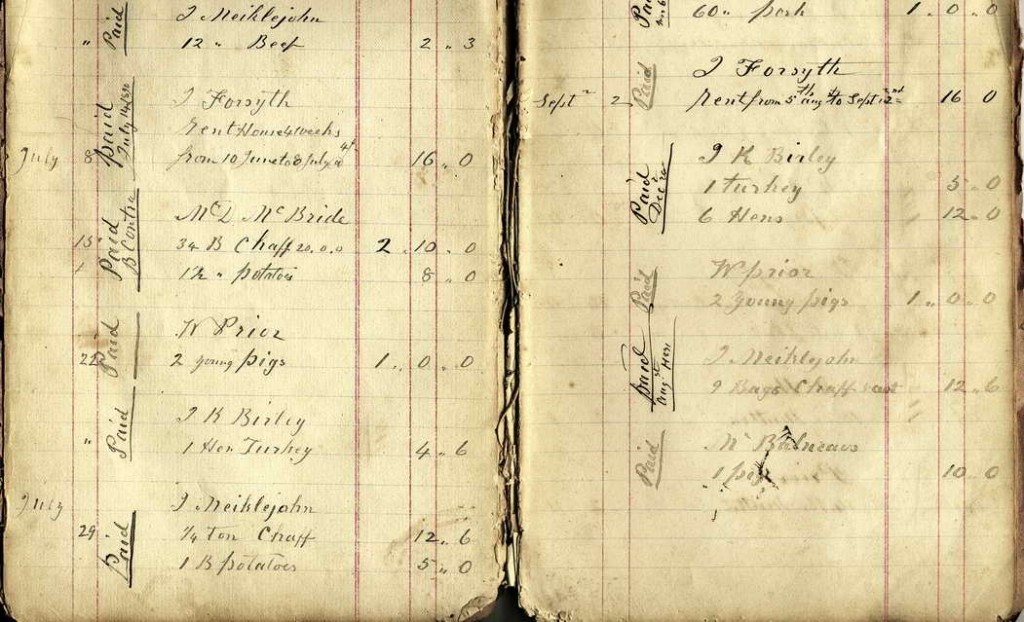 J Meiklejohn
" Paid 12 " Beef 2 " 3
J Forsyth
Paid July 14/90
Rent House 4 weeks
July 8 from 10 June to 8 July 16 " 0
McD McBride
Paid B Contra
15 34 B Chaff 20.0.0 2 " 10 " 0
" potatoes 8 " 0
W Prior
22 Paid 2 young pigs 1 " 0 " 0
J K Birley
" Paid 1 Hen Turkey 4 " 6
July J Meiklejohn
29 Paid 1/4 Ton Chaff 12 " 6
1 B potatoes 5 " 0
Paid 60 " pork 1 " 0 " 0
J Forsyth
Sept 2 Paid Rent from 5th Aug to Sept 2nd 16 0
J K Birley
Paid Dec 1 Turkey 5 " 0
6 Hens 12 " 0
W Prior
Paid 2 young pigs 1 " 0 " 0
J Meiklejohn
Paid Aug 9 Bags Chaff 12 " 6
Mr Balneaves
Paid 1 10 " 0